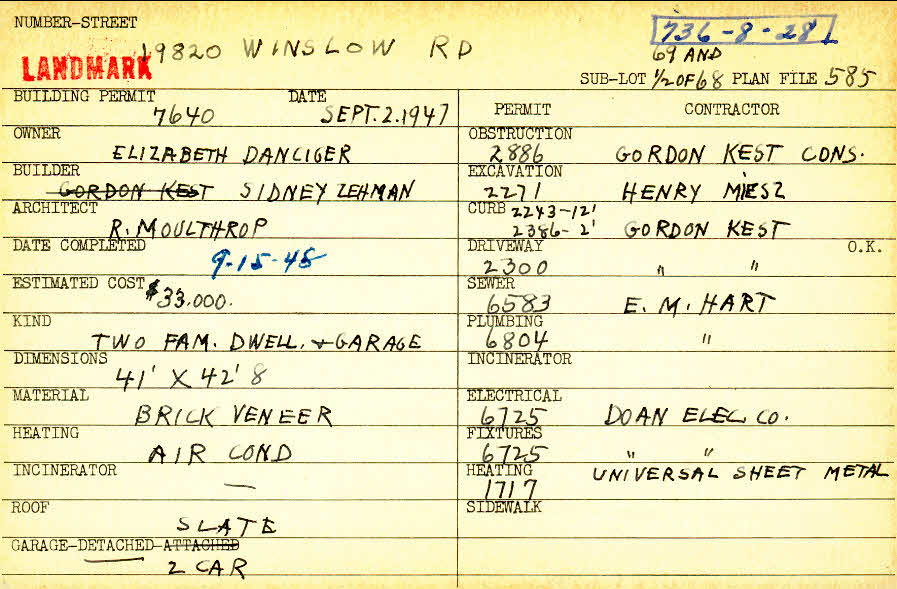 NUMBER-STREET
19820 WINSLOW RD
736-8-28
LANDMARK
69 AND
SUB-LOT 1/2 OF 68 PLAN FILE 585
BUILDING PERMIT DATE
7640 SEPT. 2. 1947
OWNER
ELIZABETH DANCIGER
BUILDER
GORDON KEST SIDNEY LEHMAN
ARCHITECT
R. MOULTHROP
DATE COMPLETED
9-15-48
ESTIMATED COST
$33,000.
KIND
TWO FAM. DWELL. + GARAGE
DIMENSIONS
41' X 42' 8
MATERIAL
BRICK VENEER
HEATING
AIR COND
INCINERATOR
—
ROOF
SLATE
GARAGE-DETACHED-ATTACHED
2 CAR
PERMIT CONTRACTOR
OBSTRUCTION
2886 GORDON KEST CONS.
EXCAVATION
2271 HENRY MIESZ
CURB 2243-12'
2386-2' GORDON KEST
DRIVEWAY O.K.
2300 " "
SEWER
6583 E. M. HART
PLUMBING
6804 "
INCINERATOR
ELECTRICAL
6725 DOAN ELEC CO.
FIXTURES
6725 " "
HEATING UNIVERSAL SHEET METAL
1717
SIDEWALK